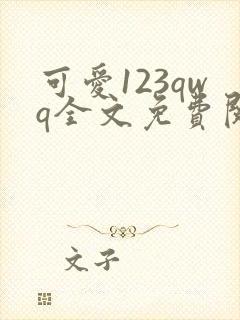 可愛123qw
q全文免費閱
文子